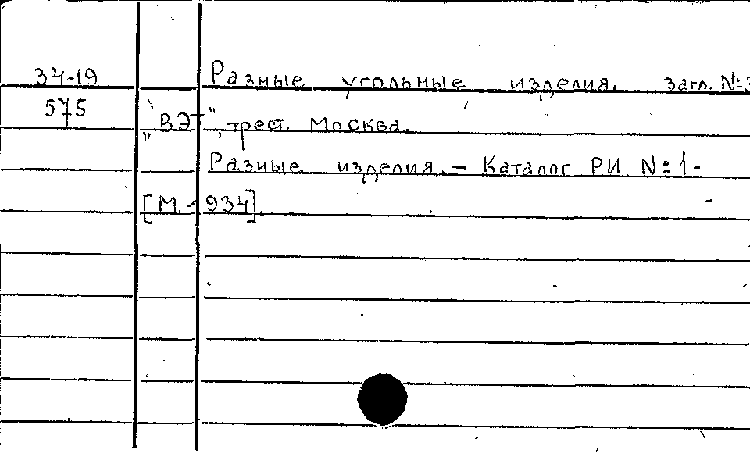 34-19 Разные угольные изделия. загл. №3
575
„ВЭТ", трест. Москва.
Разные изделия. – Каталог РИ №1-
[М. 934]